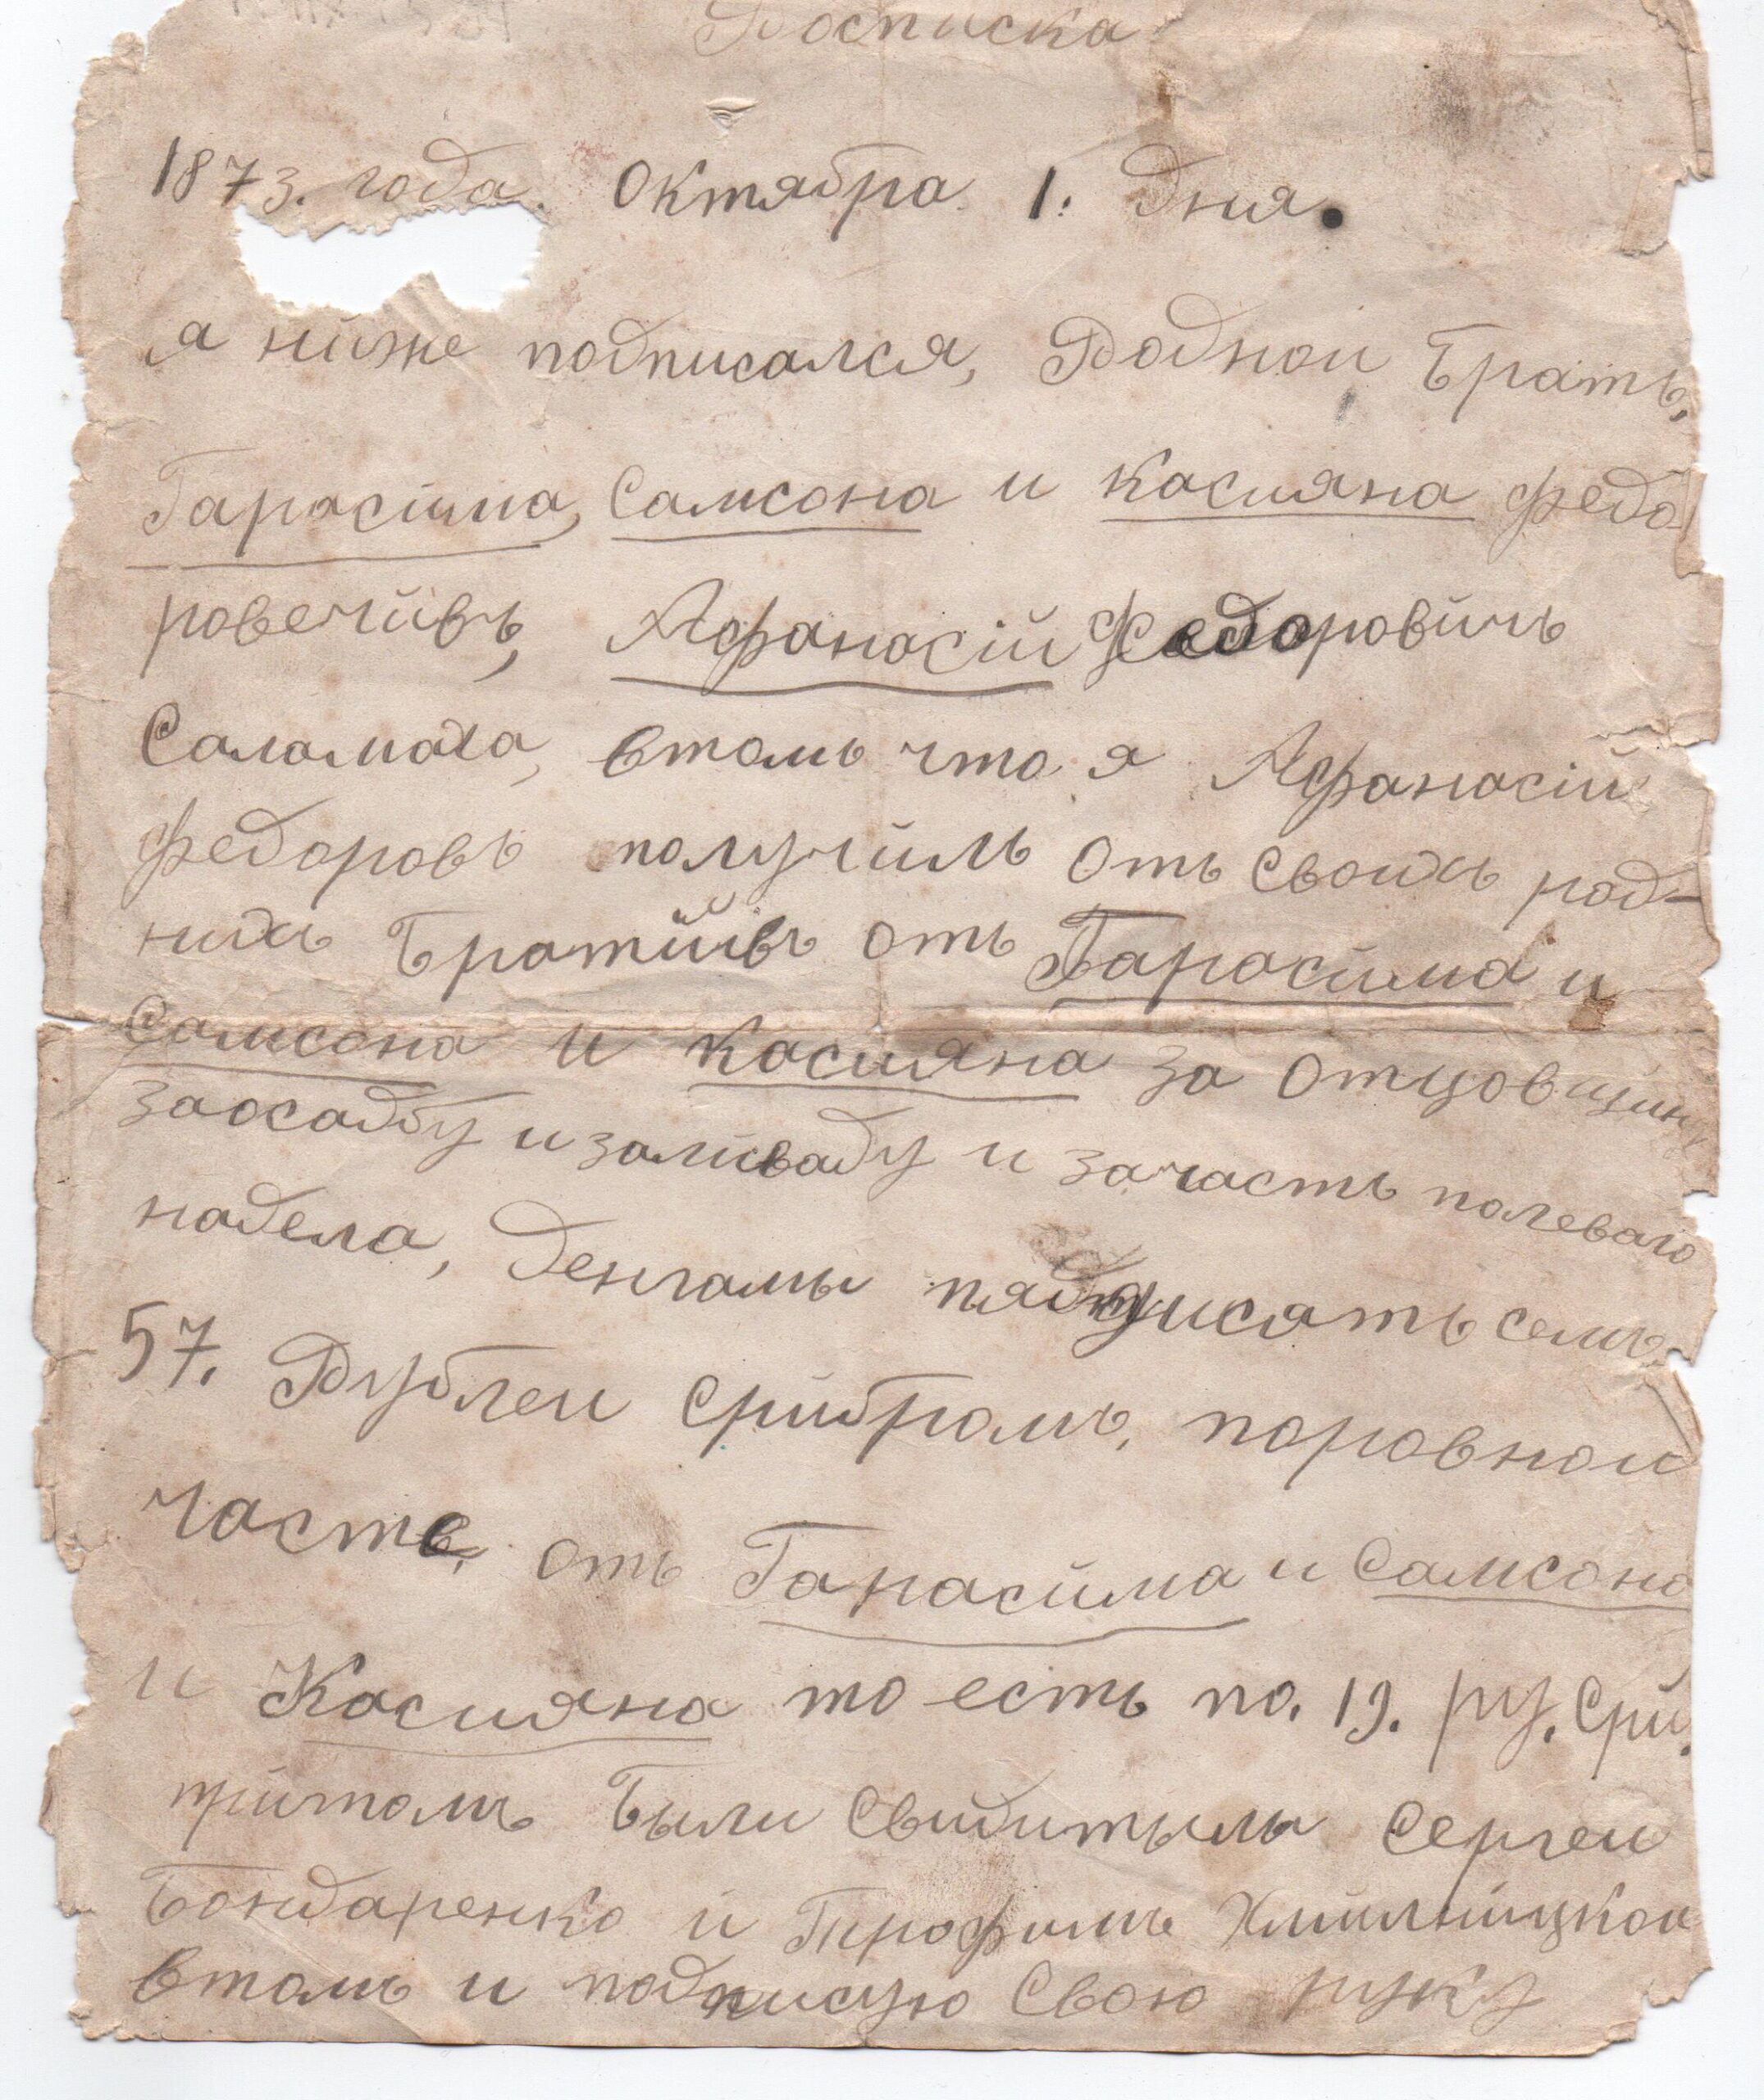 Росписка
1873. года. Октября 1. Дня.
я ниже подписался, Роднои Братъ,
Гарасима, Самсона и Касияна Федо
ровечивъ, Афанасій Федоровичъ
Саламаха, втомъ что я Афанасій
Федоровъ получилъ Отъ Своихъ род-
нихъ Братиивъ отъ Гарасима и
Самсона и Касияна за Отцовщину
заосадбу и заливаду и зачасть полеваго
надела, Денгамы пядьдисятъ семъ
57. Рублеи Срибромъ, поровнои
часте, отъ Гарасима и Самсона
и Касияна то есть по. 19. ру. Сри.
притомъ Были Свидитыли Сергеи
Бондаренко и Трофимъ Хмилницкои
втомъ и подписую Свою руку